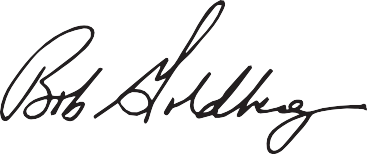 Bob Goldberg